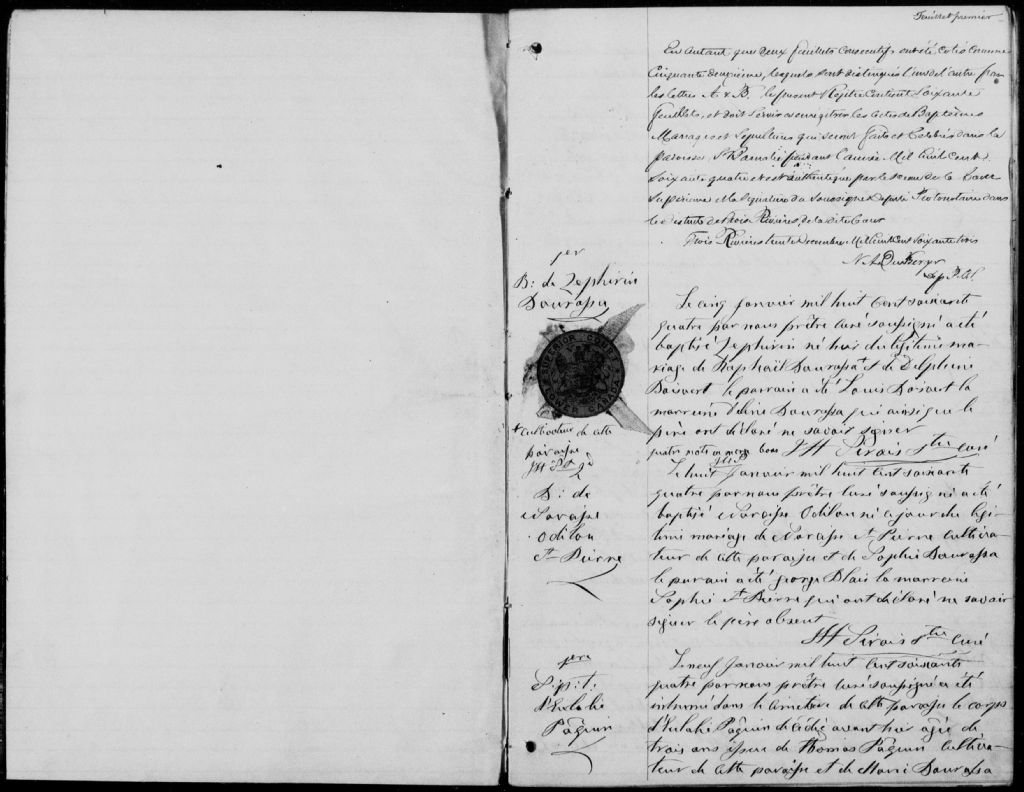 Feuillet premier
En autant que deux feuillets consecutifs ont été cotés comme
Cinquante deuxieme, lesquels sont distingués l'un de l'autre par
les lettres A & B. le present Registre contient Soixante
feuillets, et doit servir a enregistrer les actes de Baptêmes
Mariages et Sepultures qui seront faits et Celebrés dans la
paroisse St Barnabé pendant l'année Mil huit Cent
Soixante quatre et est authentiqué par le sceau de la Cour
Superieure et la signature du Soussigné Deputé Protonotaire dans
le district de Trois Rivières, de la dite Cour
Trois Rivières trente Decembre Mil huit Cent Soixante trois
Dep P.C.S.
1er
B: de Zephirin
Daurassa
SUPERIOR COURT
LOWER CANADA
Le cinq Janvier mil huit cent soixante
quatre par nous prêtre curé soussigné a été
baptisé Zephirin né hier du légitime ma-
riage de Raphaël Daurassa + et de Delphine
Boisvert le parrain a été Louis Boisvert la
marraine Deline Daurassa qui ainsi que le
père ont déclaré ne savoir signer
quatre mots en marge bons JH Sirois Ptre curé
+ cultivateur de cette
paroisse
B: de
Narcisse
Odilon
St Pierre
Le huit Janvier mil huit cent soixante
quatre par nous prêtre curé soussigné a été
baptisé Narcisse Odilon né ce jour du légi-
time mariage de Narcisse St Pierre cultiva-
teur de cette paroisse et de Sophie Daurassa
le parrain a été George Blais la marraine
Sophie St Pierre qui ont déclaré ne savoir
signer le père absent
JH Sirois Ptre curé
1ere
Sépt:
d'Eulalie
Paquin
Le neuf Janvier mil huit cent soixante
quatre par nous prêtre curé soussigné a été
inhumé dans le cimetière de cette paroisse le corps
d'Eulalie Paquin décédée avant hier agée de
trois ans issue de Thomas Paquin cultiva-
teur de cette paroisse et de Marie Daurassa